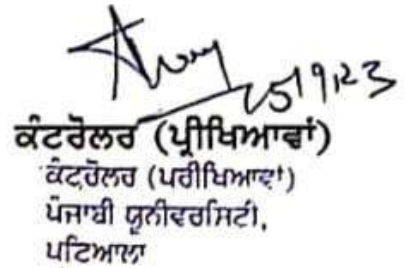 25/9/23
ਕੰਟਰੋਲਰ (ਪ੍ਰੀਖਿਆਵਾਂ)
ਕੰਟਰੋਲਰ (ਪਰੀਖਿਆਵਾਂ)
ਪੰਜਾਬੀ ਯੂਨੀਵਰਸਿਟੀ,
ਪਟਿਆਲਾ